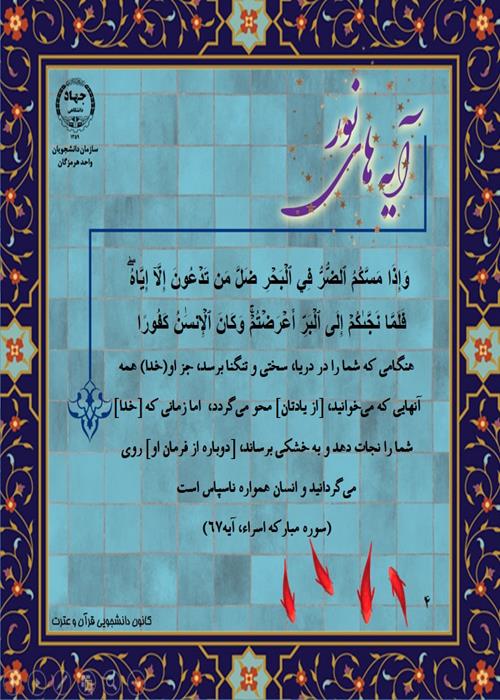 جهاد
دانشگاهی
۱۳۵۹
سازمان دانشجویان
واحد هرمزگان
آیه های نور
وَإِذَا مَسَّكُمُ ٱلضُّرُّ فِي ٱلۡبَحۡرِ ضَلَّ مَن تَدۡعُونَ إِلَّآ إِيَّاهُۖ
فَلَمَّا نَجَّىٰكُمۡ إِلَى ٱلۡبَرِّ أَعۡرَضۡتُمۡۚ وَكَانَ ٱلۡإِنسَٰنُ كَفُورًا
هنگامی که شما را در دریا، سختی و تنگنا برسد، جز او(خدا) همه
آنهایی که می‌خوانید، [از یادتان] محو می‌گردد، اما زمانی که [خدا]
شما را نجات دهد و به خشکی برساند، [دوباره از فرمان او] روی
می‌گردانید و انسان همواره ناسپاس است
(سوره مبارکه اسراء، آیه۶۷)
۴
کانون دانشجویی قرآن و عترت